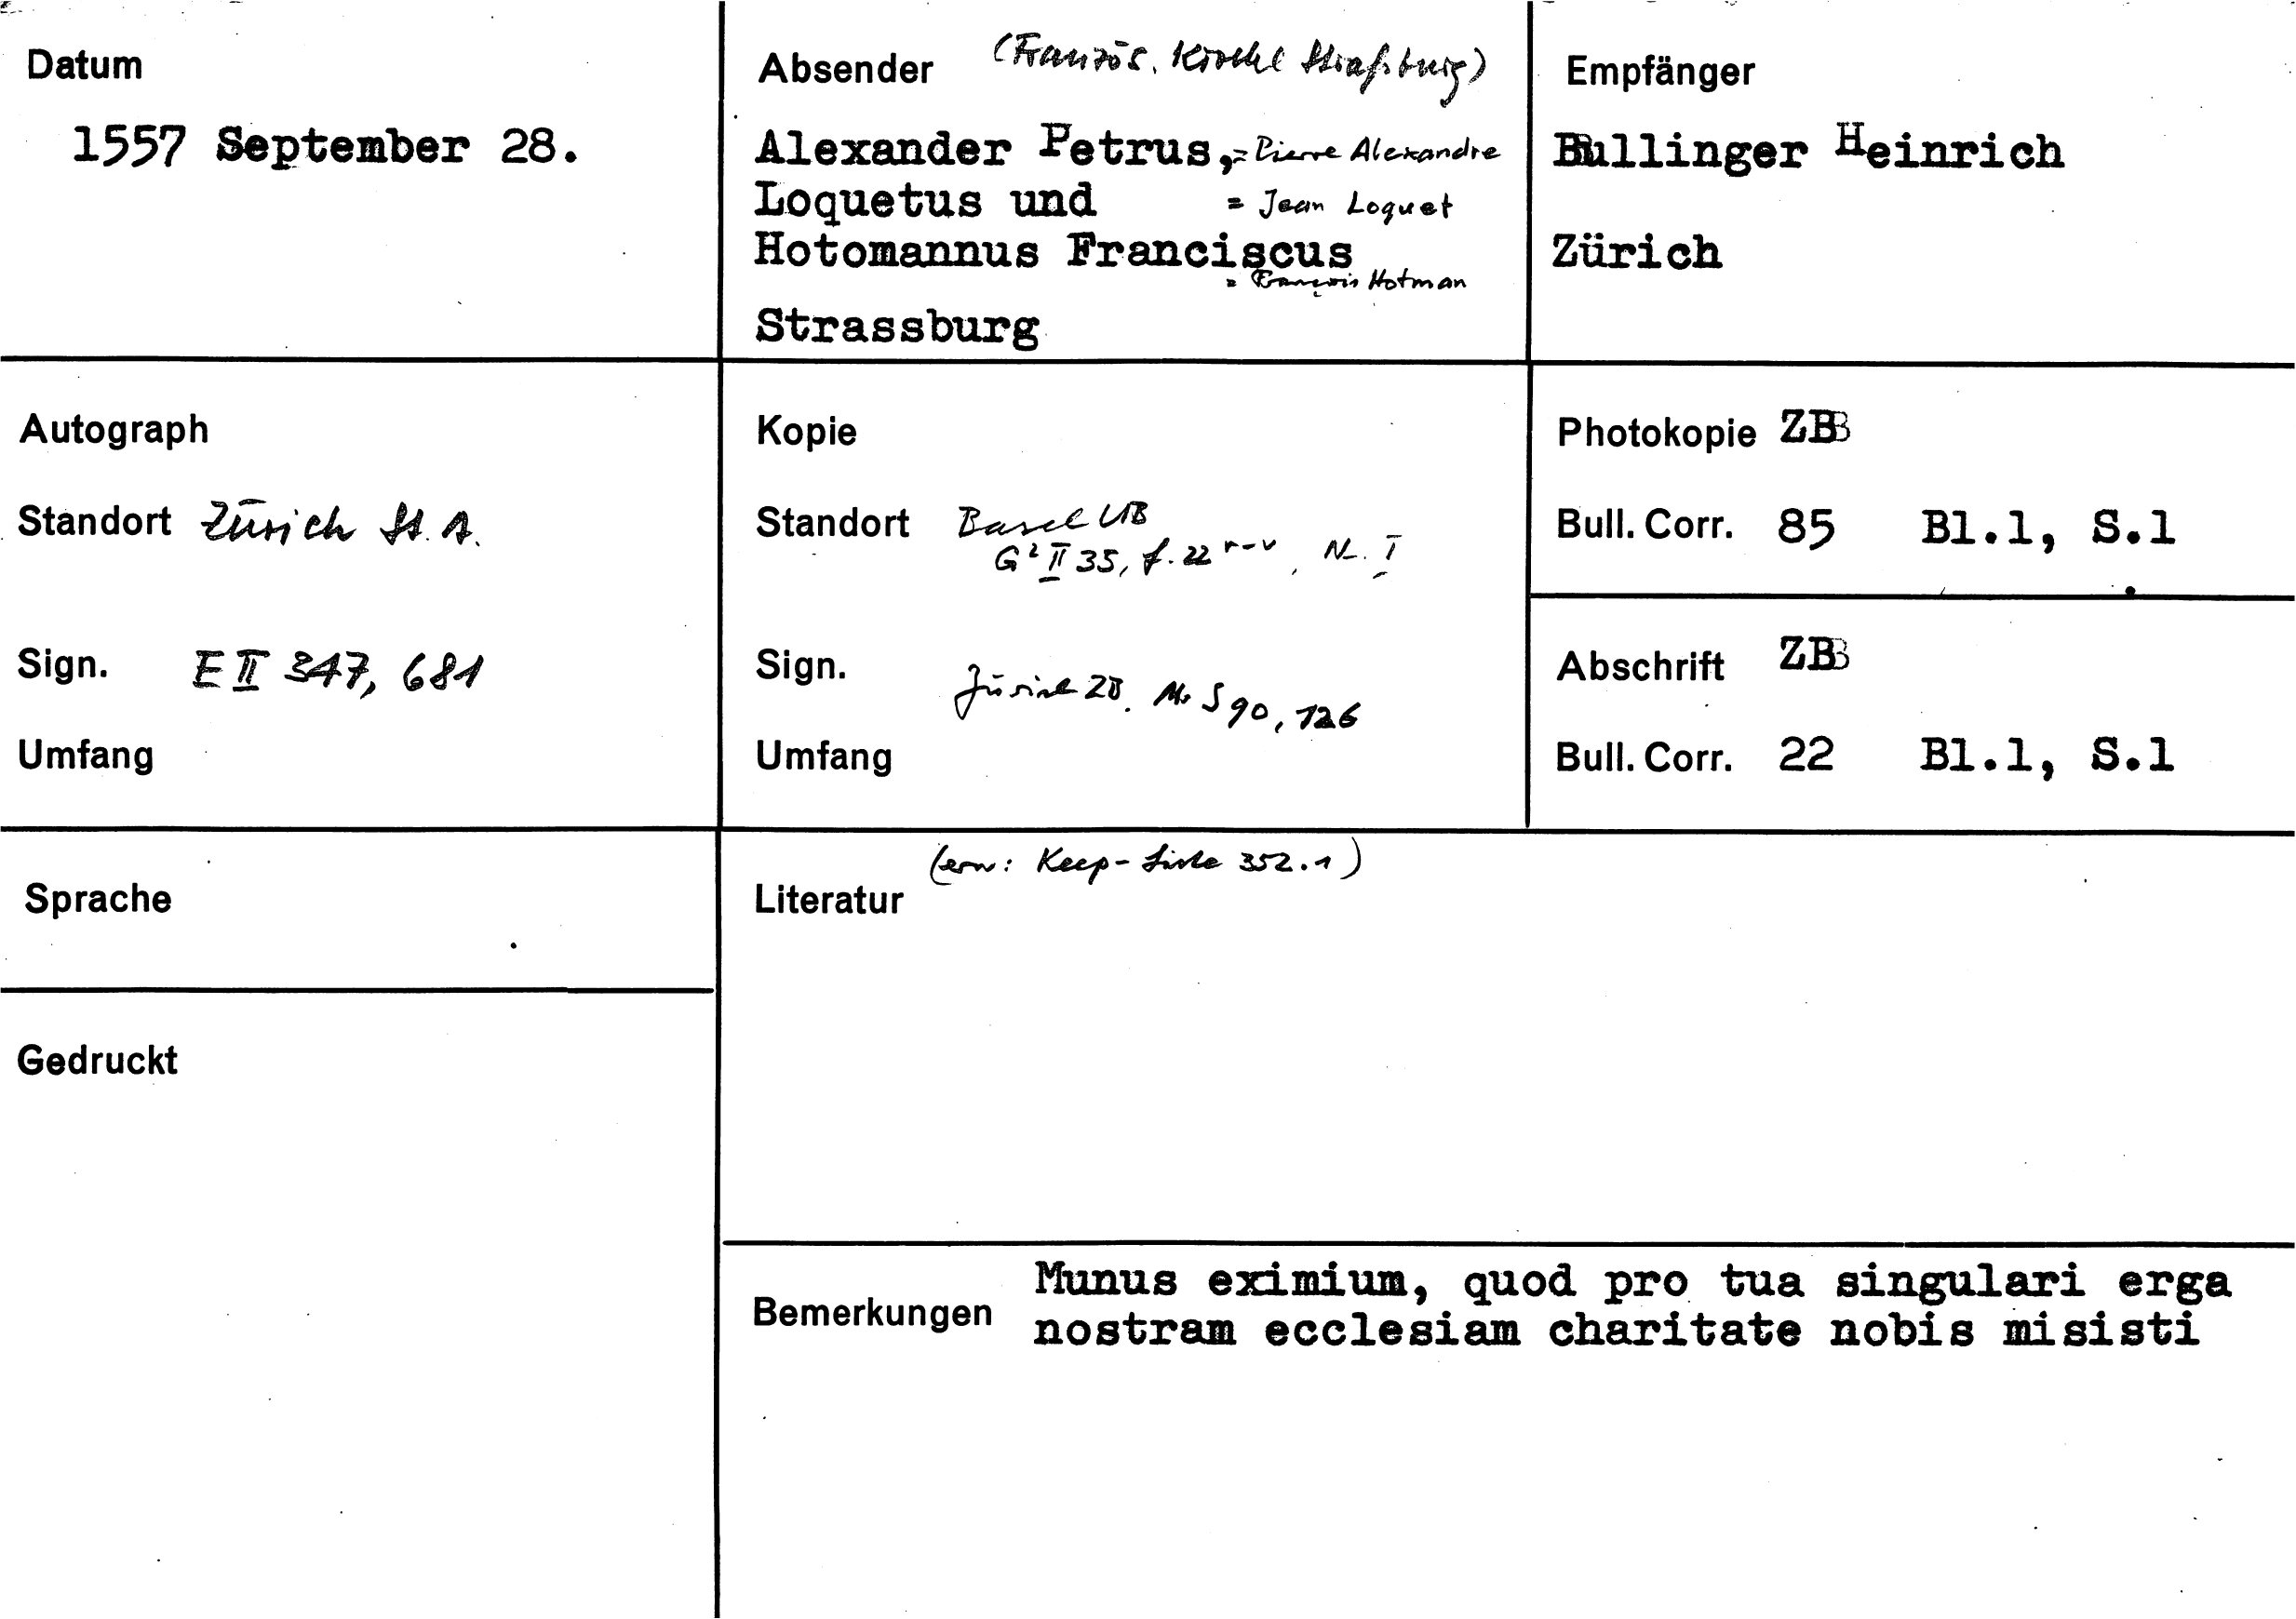 Datum
1557 September 28.
Absender (Französ. Kirche Straßburg)
Alexander Petrus, = Pierre Alexandre
Loquetus und = Jean Loquet
Hotomannus Franciscus
= François Hotman
Strassburg
Empfänger
Bullinger Heinrich
Zürich
Autograph
Standort Zürich St. A.
Sign. E II 347, 681
Umfang
Kopie
Standort Basel UB
G² II 35, f. 22 r-v, N. I
Sign.
Zürich ZB. Ms S 90, 126
Umfang
Photokopie ZB
Bull. Corr. 85 Bl.1, S.1
Abschrift ZB
Bull. Corr. 22 Bl.1, S.1
Sprache
Gedruckt
(erw: Keep-Liste 352.1)
Literatur
Munus eximium, quod pro tua singulari erga
Bemerkungen
nostram ecclesiam charitate nobis misisti